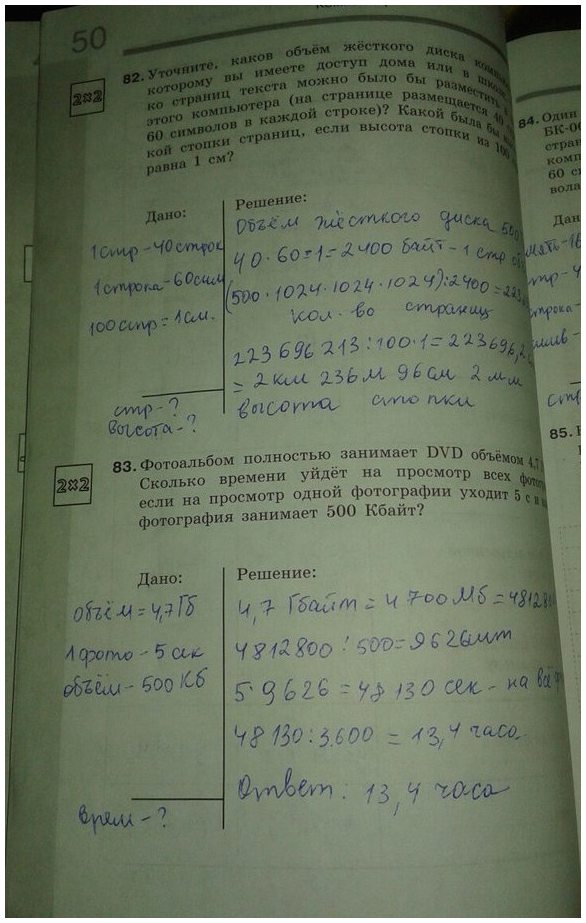 50
82. Уточните, каков объём жёсткого диска
которому вы имеете доступ дома или в
ко страниц текста можно было бы разместить
этого компьютера (на странице размещается 40
60 символов в каждой строке)? Какой была бы
кой стопки страниц, если высота стопки из 100
равна 1 см?
2×2
Дано:
1 стр - 40 строк
1 строка - 60 сим
100 стр = 1 см.
стр - ?
высота - ?
Решение:
Объём жёсткого диска 500
40 · 60 = 1 = 2400 байт - 1 стр
(500 · 1024 · 1024 · 1024) : 2400 = 223
кол. во страниц
223 696 213 : 100 · 1 = 223 696,2
= 2 км 236 м 96 см 2 мм
высота стопки
83. Фотоальбом полностью занимает DVD объёмом 4,7
Сколько времени уйдёт на просмотр всех
если на просмотр одной фотографии уходит 5 с и
фотография занимает 500 Кбайт?
2×2
Дано:
Объём = 4,7 Гб
1 фото - 5 сек
объём - 500 Кб
врем - ?
Решение:
4,7 Гбайт = 4 700 Мб = 4812800
4812800 : 500 = 9626 шт
5 9626 = 48 130 сек - на всё
48 130 : 3600 = 13,4 часа
Ответ: 13,4 часа
84. Один
БК-00
стран
комп
60 си
вола
Дан
85.